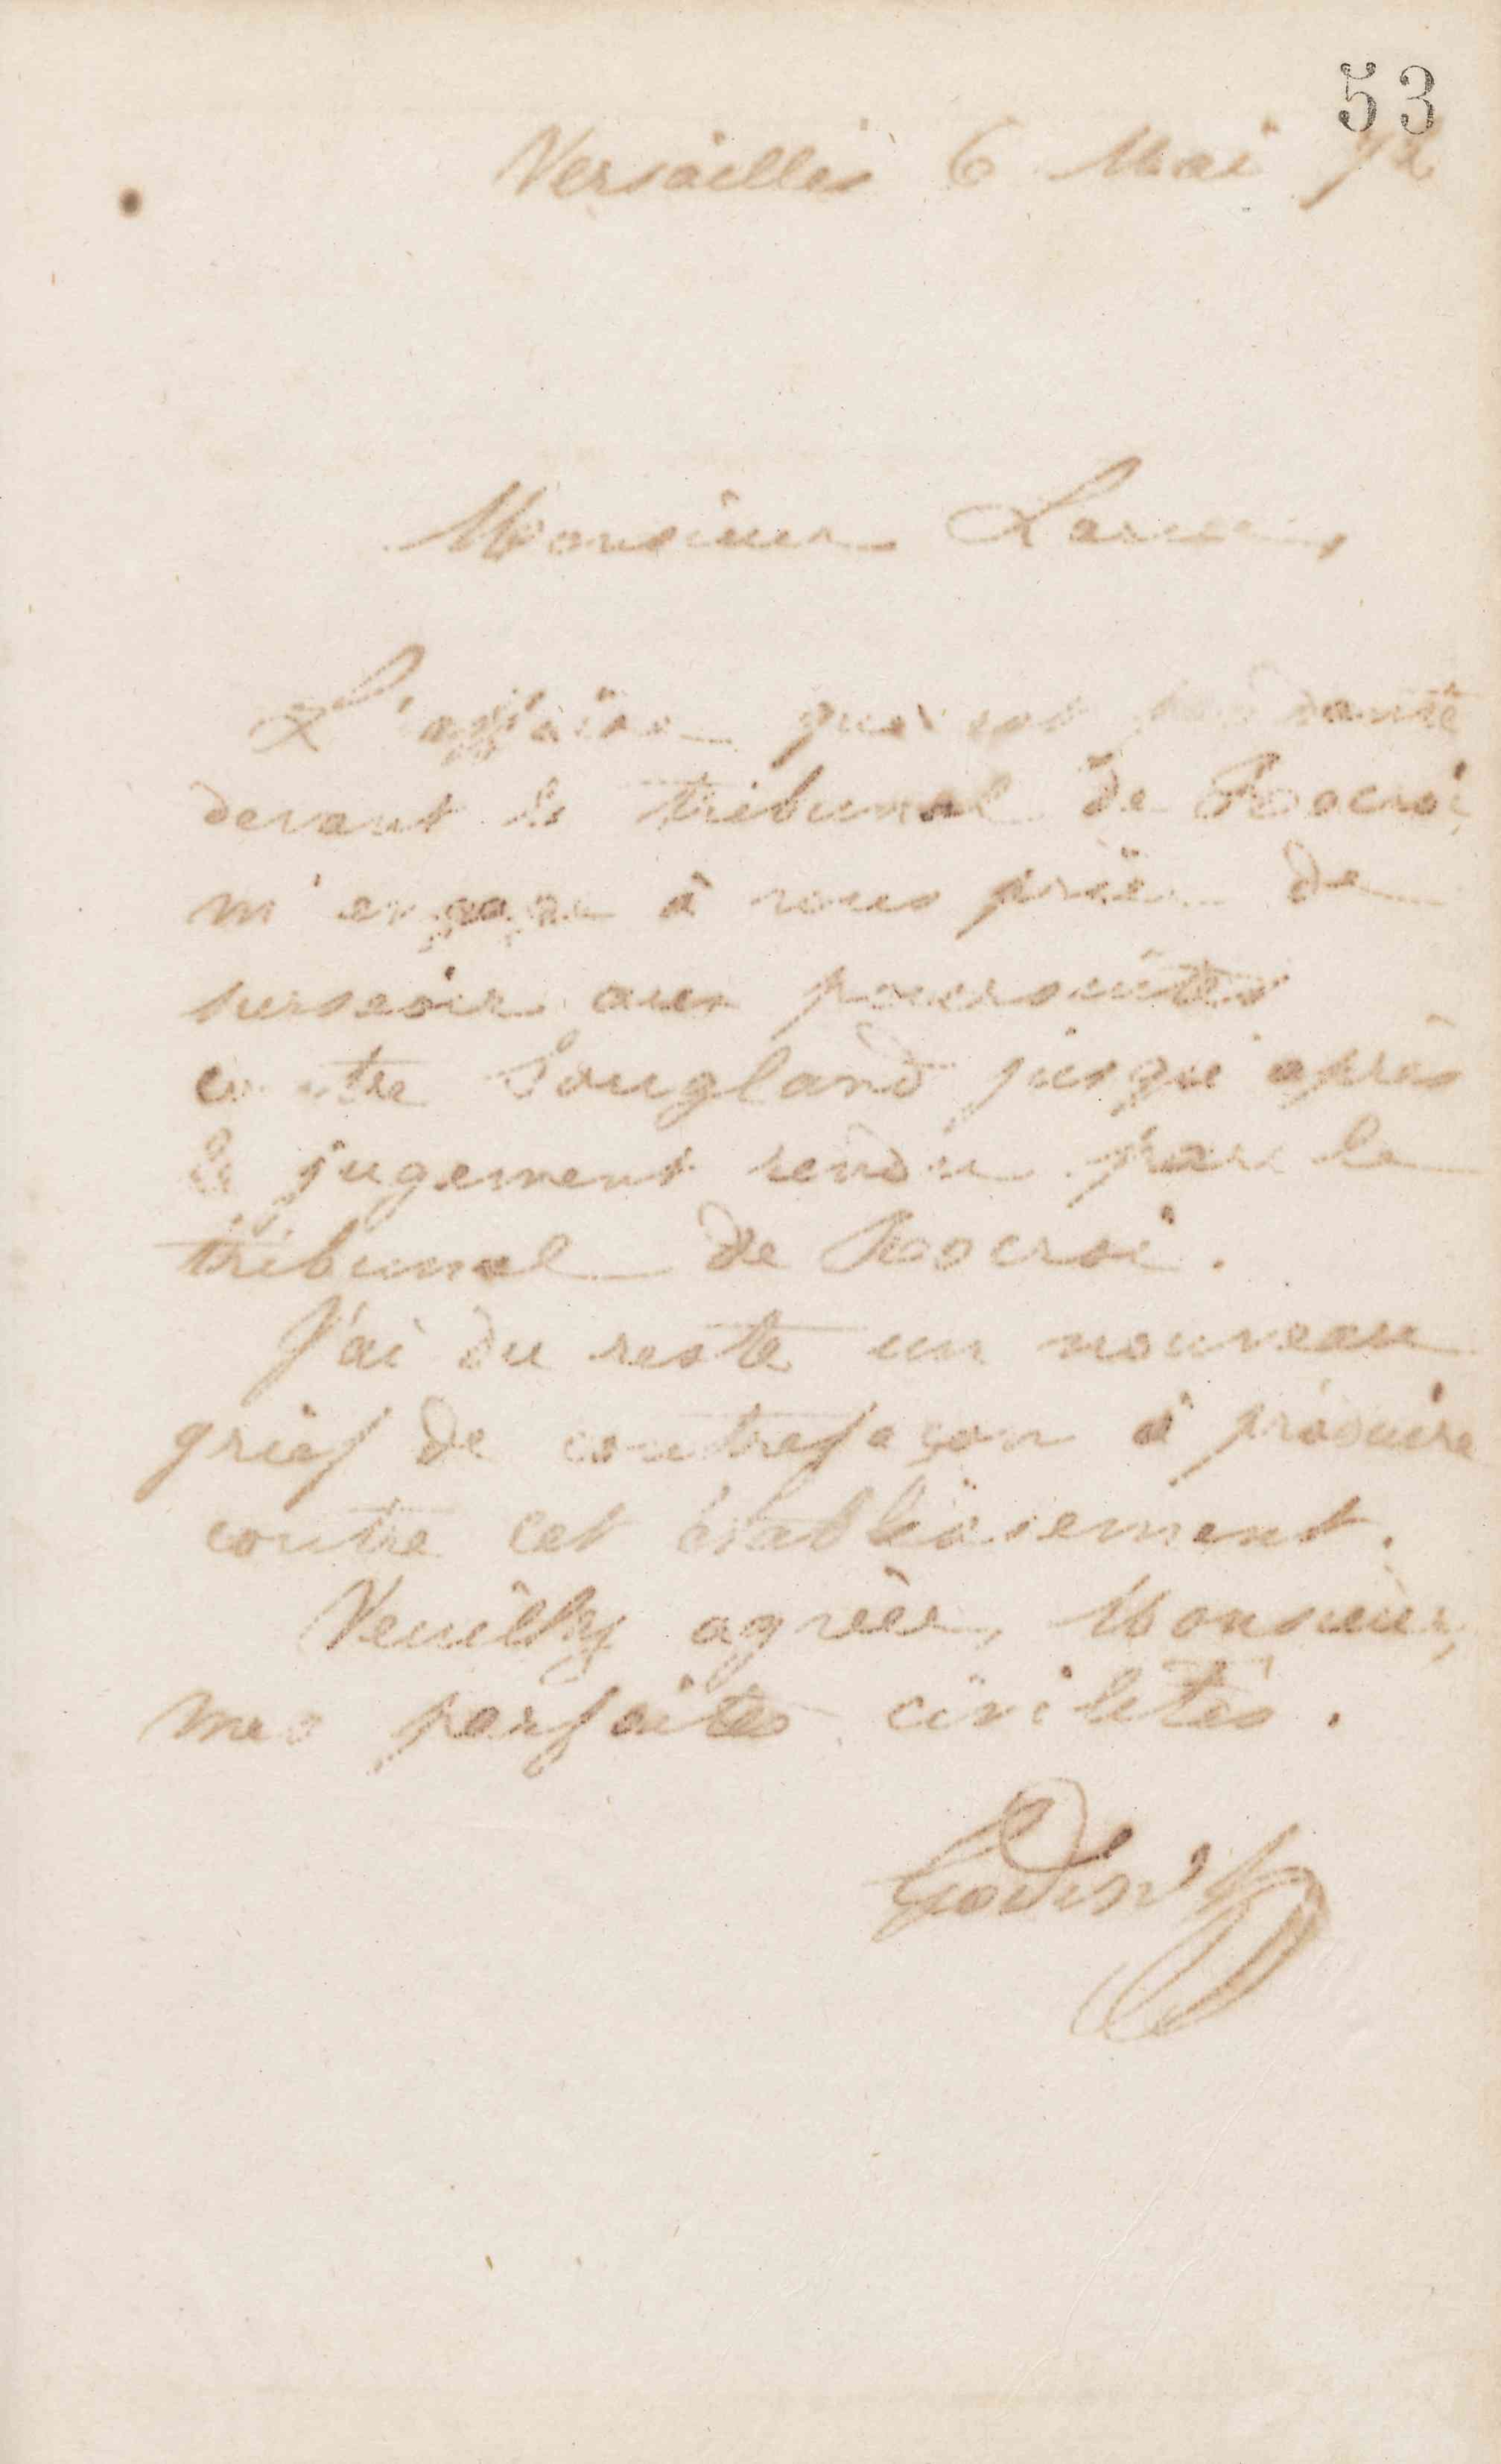 53
Versailles 6 Mai 72
Monsieur
L'affaire qui est pendante
devant le tribunal de Rocroi
m'engage à vous prier de
surseoir aux poursuites
contre Sougland jusqu'après
le jugement rendu par le
tribunal de Rocroi.
J'ai du reste un nouveau
grief de contrefaçon à produire
contre cet établissement.
Veuillez agréer, Monsieur,
mes parfaites civilités.
Godin